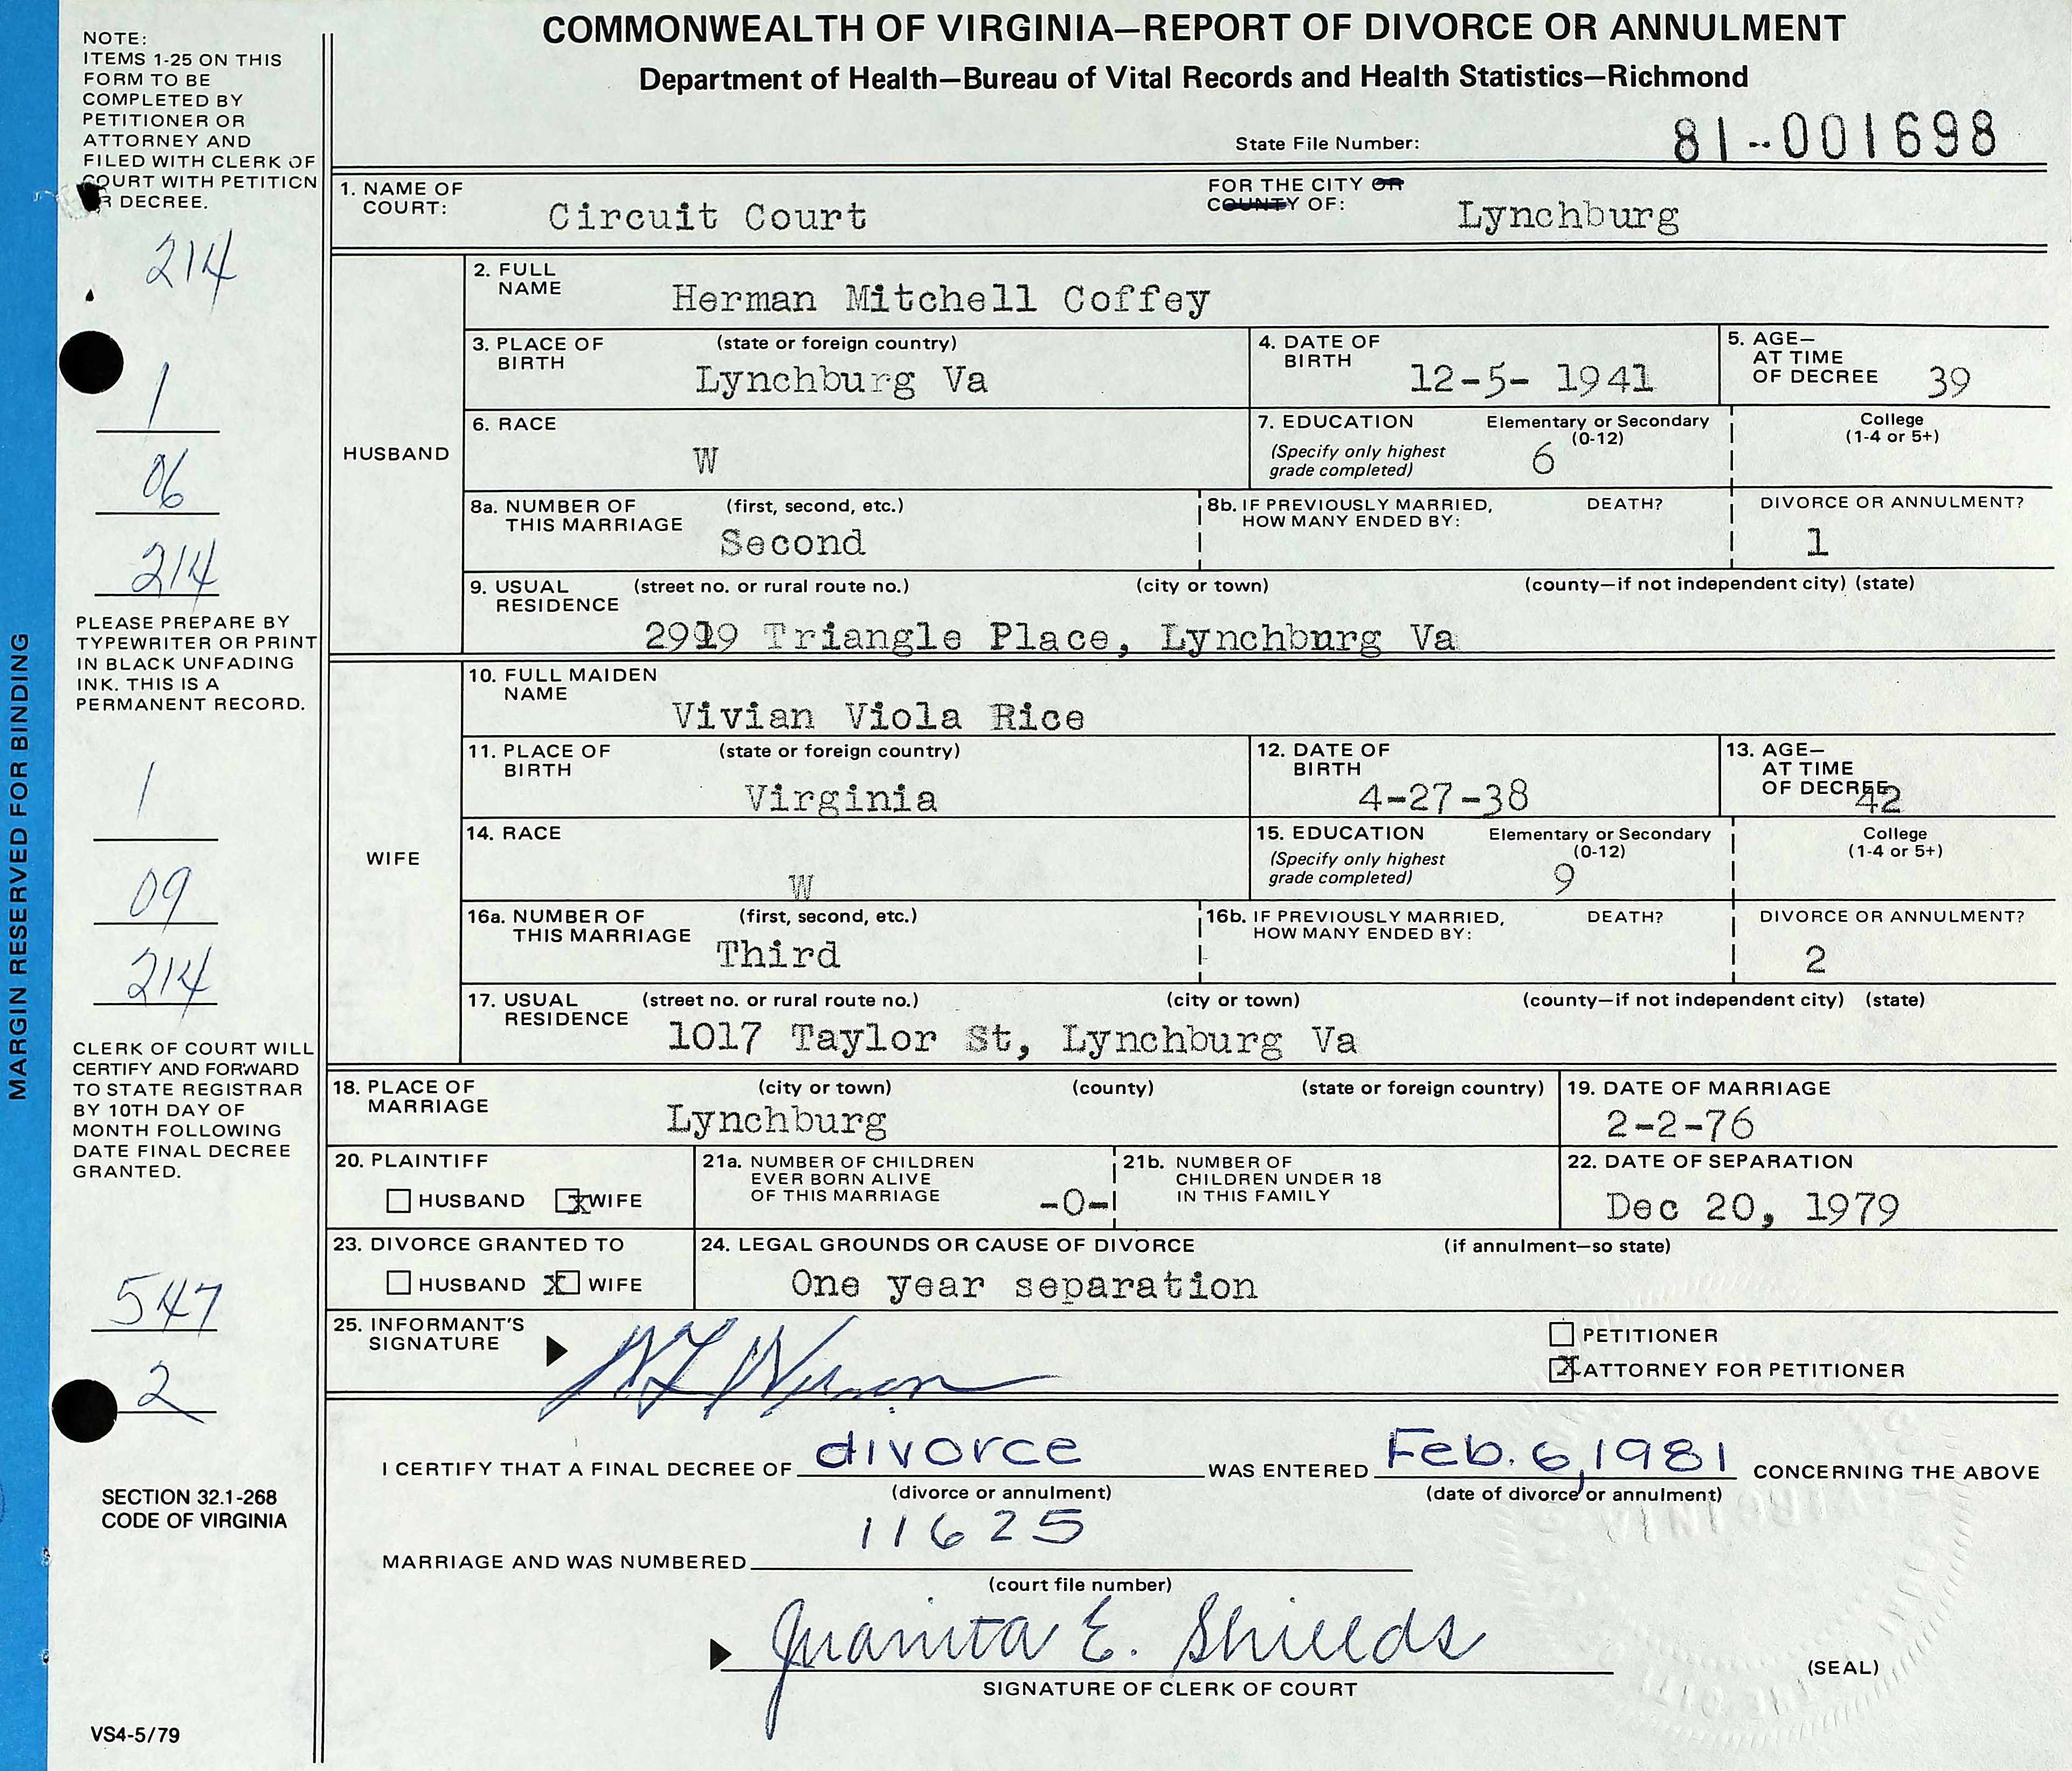 COMMONWEALTH OF VIRGINIA—REPORT OF DIVORCE OR ANNULMENT
Department of Health—Bureau of Vital Records and Health Statistics—Richmond
State File Number: 81--001698
NOTE:
ITEMS 1-25 ON THIS
FORM TO BE
COMPLETED BY
PETITIONER OR
ATTORNEY AND
FILED WITH CLERK OF
COURT WITH PETITION
OR DECREE.
214
1
06
214
PLEASE PREPARE BY
TYPEWRITER OR PRINT
IN BLACK UNFADING
INK. THIS IS A
PERMANENT RECORD.
1
09
214
CLERK OF COURT WILL
CERTIFY AND FORWARD
TO STATE REGISTRAR
BY 10TH DAY OF
MONTH FOLLOWING
DATE FINAL DECREE
GRANTED.
547
2
SECTION 32.1-268
CODE OF VIRGINIA
VS4-5/79
MARGIN RESERVED FOR BINDING
1. NAME OF COURT: Circuit Court FOR THE CITY OR COUNTY OF: Lynchburg
HUSBAND
2. FULL NAME Herman Mitchell Coffey
3. PLACE OF BIRTH (state or foreign country) Lynchburg Va
4. DATE OF BIRTH 12-5- 1941
5. AGE— AT TIME OF DECREE 39
6. RACE W
7. EDUCATION (Specify only highest grade completed) Elementary or Secondary (0-12) 6 College (1-4 or 5+)
8a. NUMBER OF THIS MARRIAGE (first, second, etc.) Second
8b. IF PREVIOUSLY MARRIED, HOW MANY ENDED BY: DEATH? DIVORCE OR ANNULMENT? 1
9. USUAL RESIDENCE (street no. or rural route no.) (city or town) (county—if not independent city) (state)
2919 Triangle Place, Lynchburg Va
WIFE
10. FULL MAIDEN NAME Vivian Viola Rice
11. PLACE OF BIRTH (state or foreign country) Virginia
12. DATE OF BIRTH 4-27-38
13. AGE— AT TIME OF DECREE 42
14. RACE W
15. EDUCATION (Specify only highest grade completed) Elementary or Secondary (0-12) 9 College (1-4 or 5+)
16a. NUMBER OF THIS MARRIAGE (first, second, etc.) Third
16b. IF PREVIOUSLY MARRIED, HOW MANY ENDED BY: DEATH? DIVORCE OR ANNULMENT? 2
17. USUAL RESIDENCE (street no. or rural route no.) (city or town) (county—if not independent city) (state)
1017 Taylor St, Lynchburg Va
18. PLACE OF MARRIAGE (city or town) (county) (state or foreign country) Lynchburg
19. DATE OF MARRIAGE 2-2-76
20. PLAINTIFF HUSBAND X WIFE
21a. NUMBER OF CHILDREN EVER BORN ALIVE OF THIS MARRIAGE -0-
21b. NUMBER OF CHILDREN UNDER 18 IN THIS FAMILY
22. DATE OF SEPARATION Dec 20, 1979
23. DIVORCE GRANTED TO HUSBAND X WIFE
24. LEGAL GROUNDS OR CAUSE OF DIVORCE (if annulment—so state) One year separation
25. INFORMANT'S SIGNATURE
PETITIONER
X ATTORNEY FOR PETITIONER
I CERTIFY THAT A FINAL DECREE OF divorce WAS ENTERED Feb. 6, 1981 CONCERNING THE ABOVE
(divorce or annulment) (date of divorce or annulment)
MARRIAGE AND WAS NUMBERED 11625
(court file number)
Juanita E. Shields
SIGNATURE OF CLERK OF COURT
(SEAL)